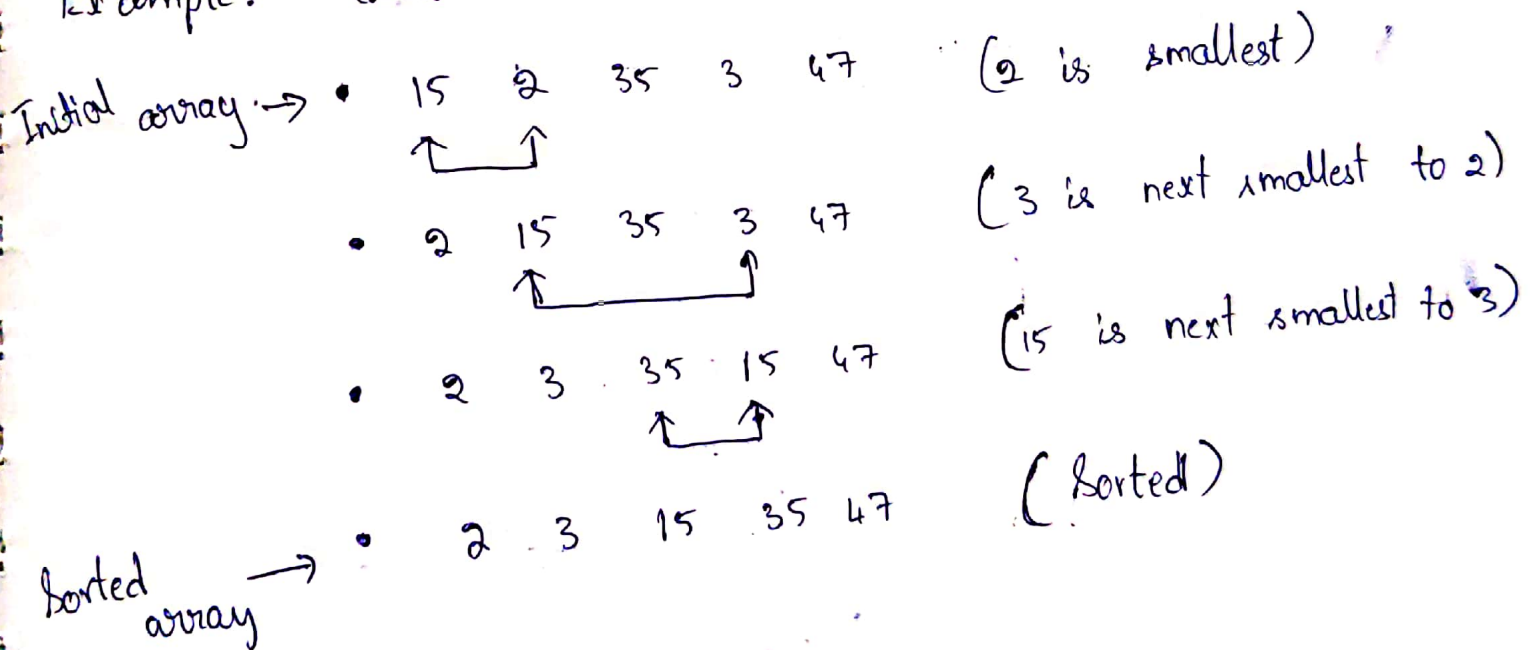 Example:
Initial array → • 15 2 35 3 47 (2 is smallest)
• 2 15 35 3 47 (3 is next smallest to 2)
• 2 3 35 15 47 (15 is next smallest to 3)
Sorted array → • 2 3 15 35 47 (Sorted)